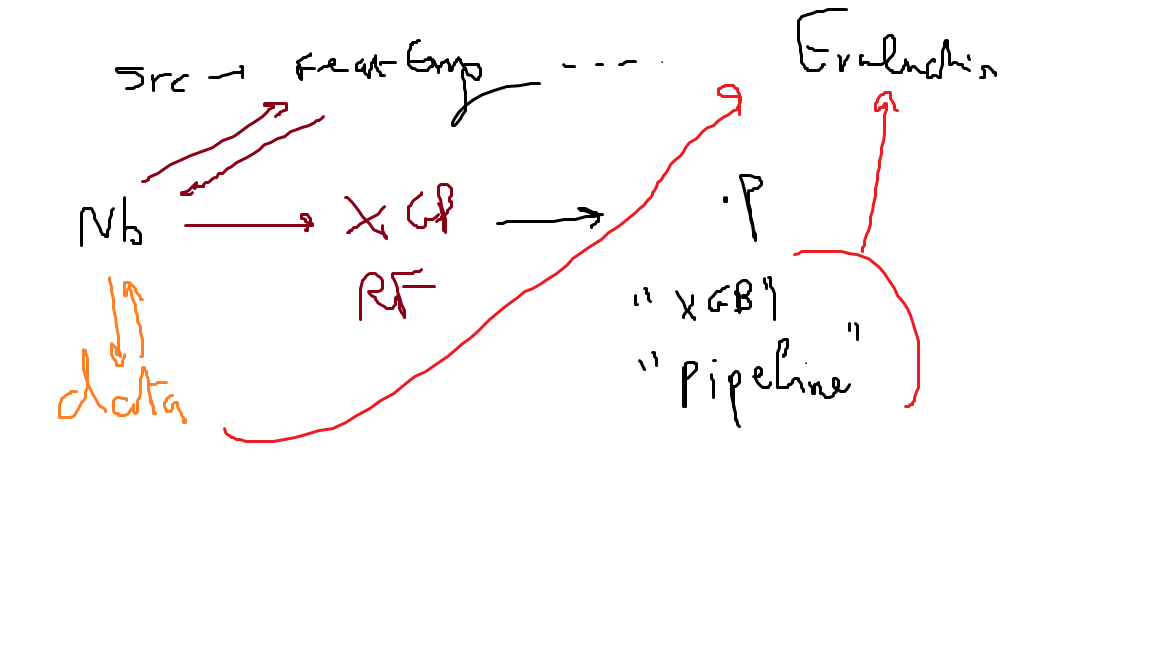 Src → Feat Eng ---- Evaluation
Nb → XGB → .P
RF
"XGB"
"pipeline"
data